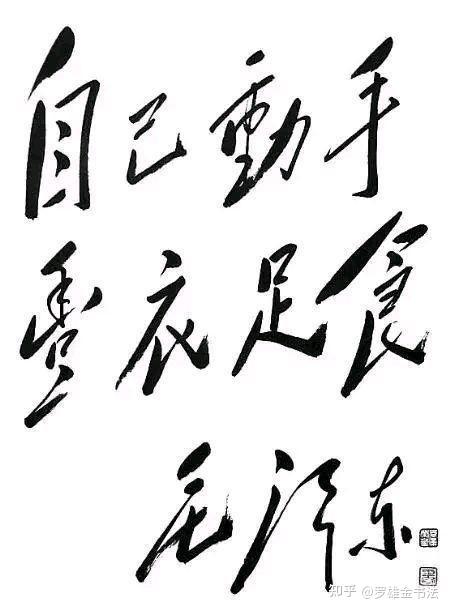 自己動手
豐衣足食
毛泽东
知乎 @罗雄金书法